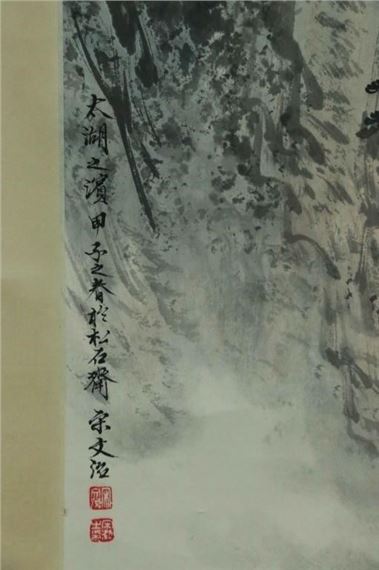 太湖之濱甲子之春於松石齋宋文治